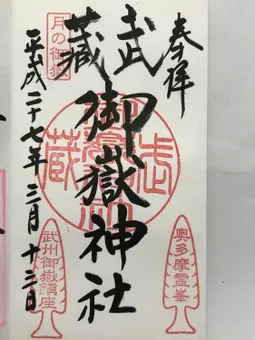 奉拝
武蔵
御嶽神社
平成二十七年三月十三日
月の御嶽
武蔵
奥多摩霊峯
武州御嶽鎮座